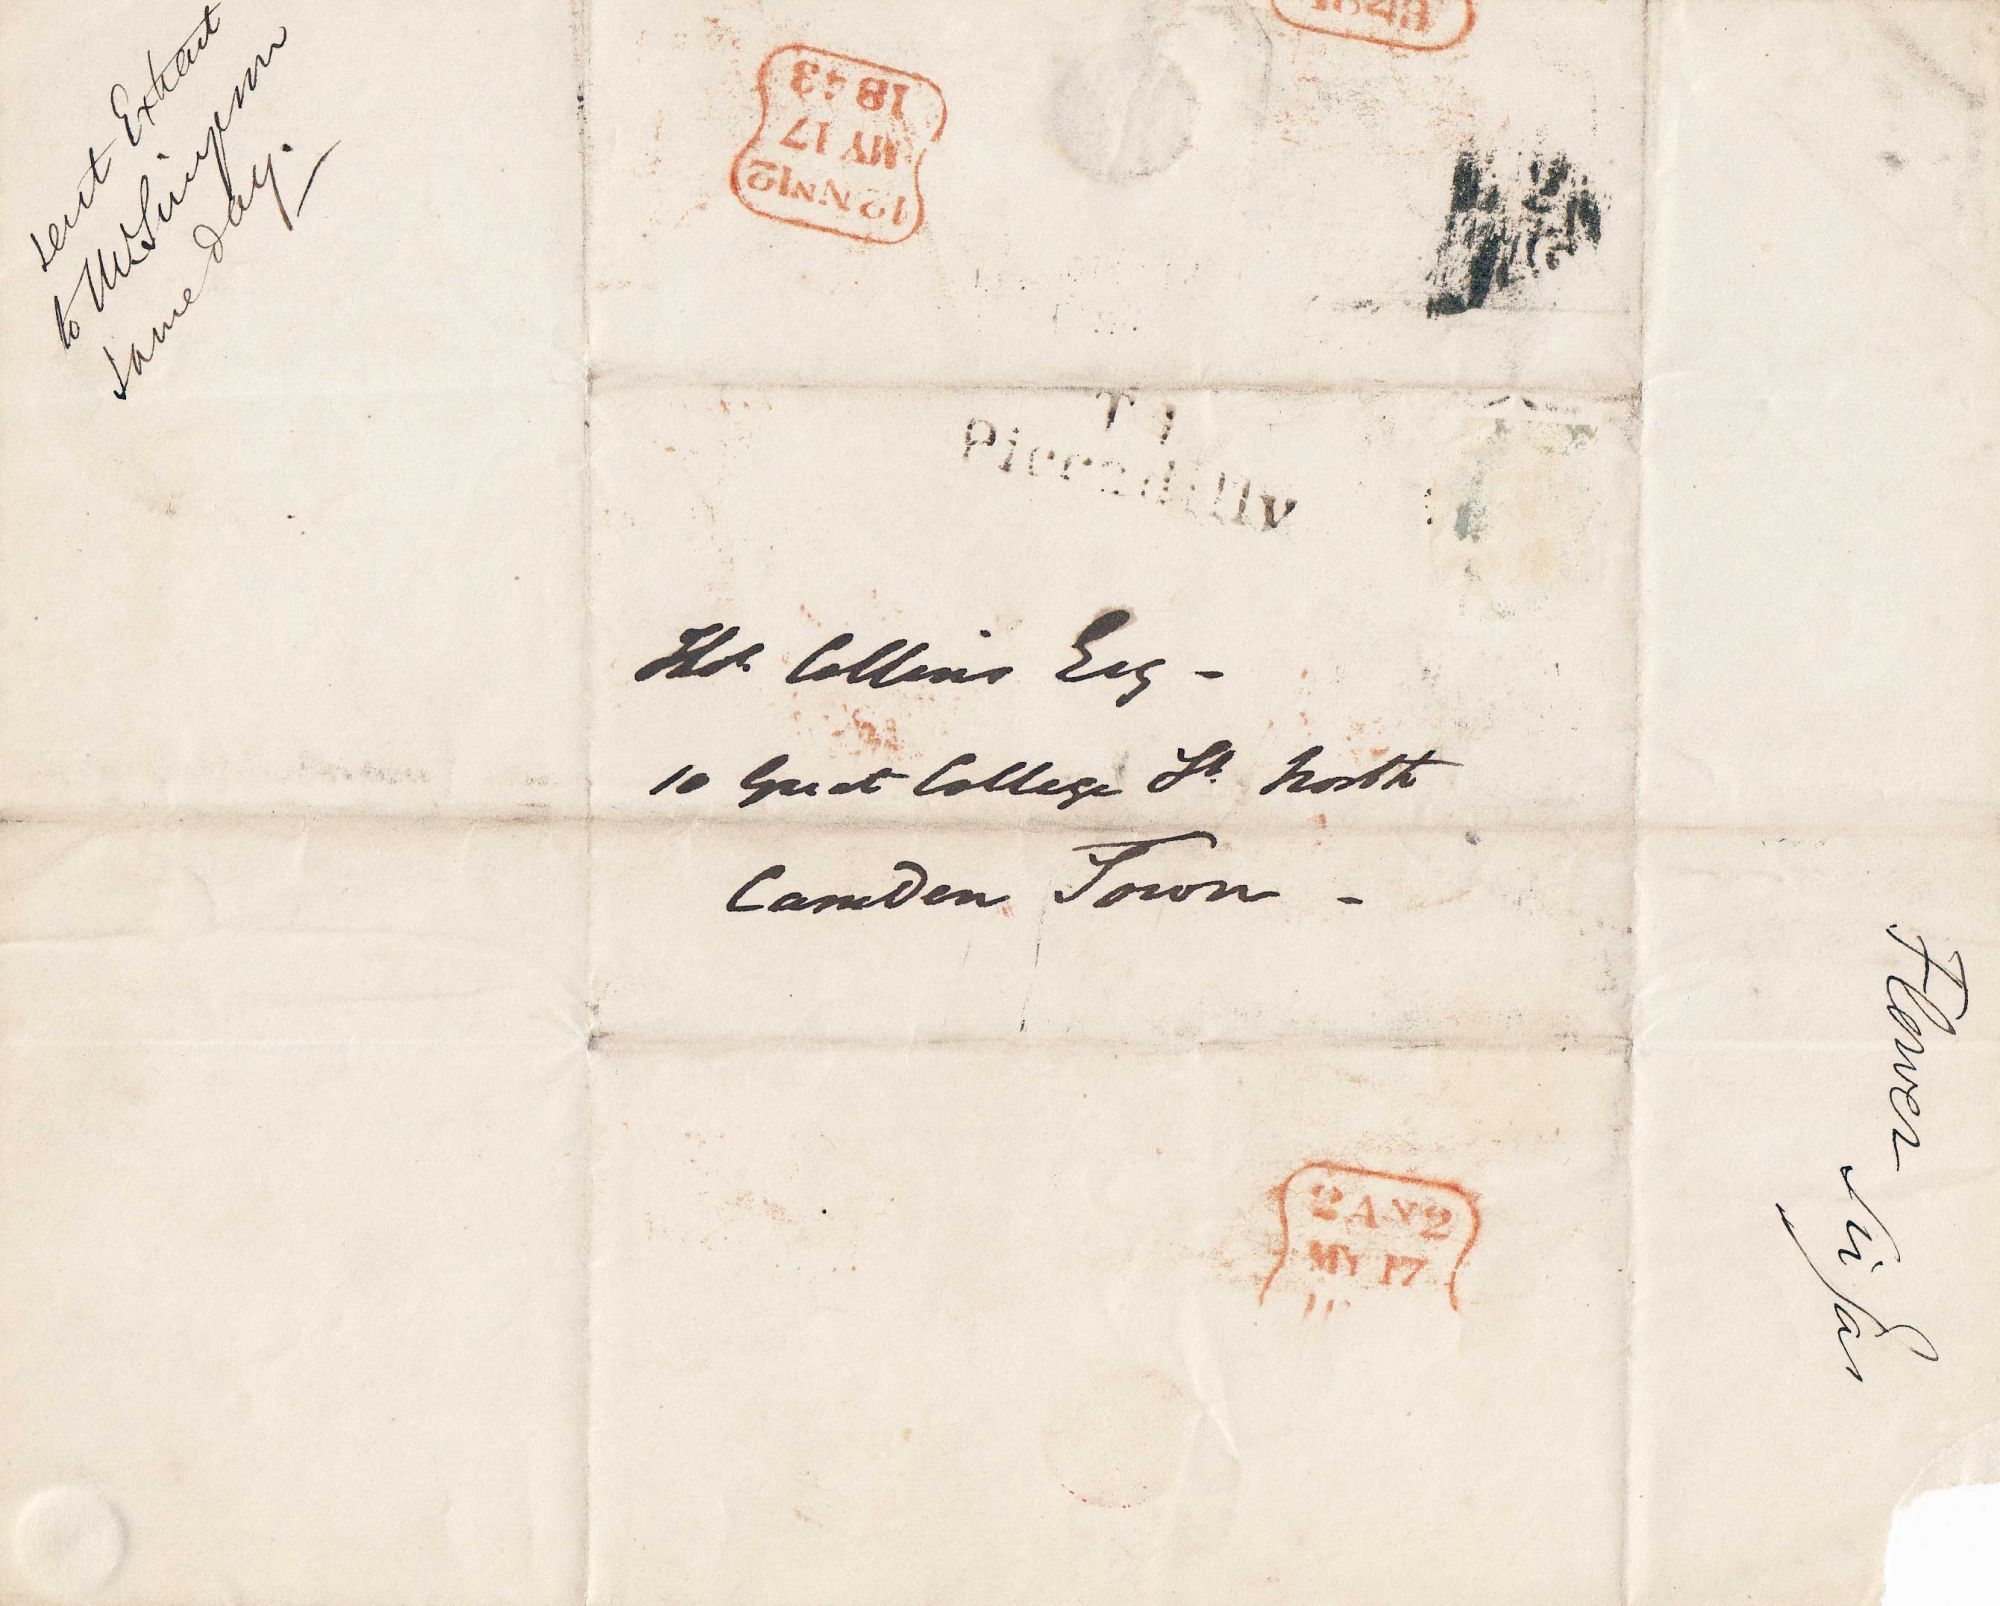 sent Extract
to
same day.
1843
12 NN 12
MY 17
1843
T P
Piccadilly
Thos. Collins Esq -
10 Great College St. North
Camden Town -
2 AN 2
MY 17
Flower
Sir Jas